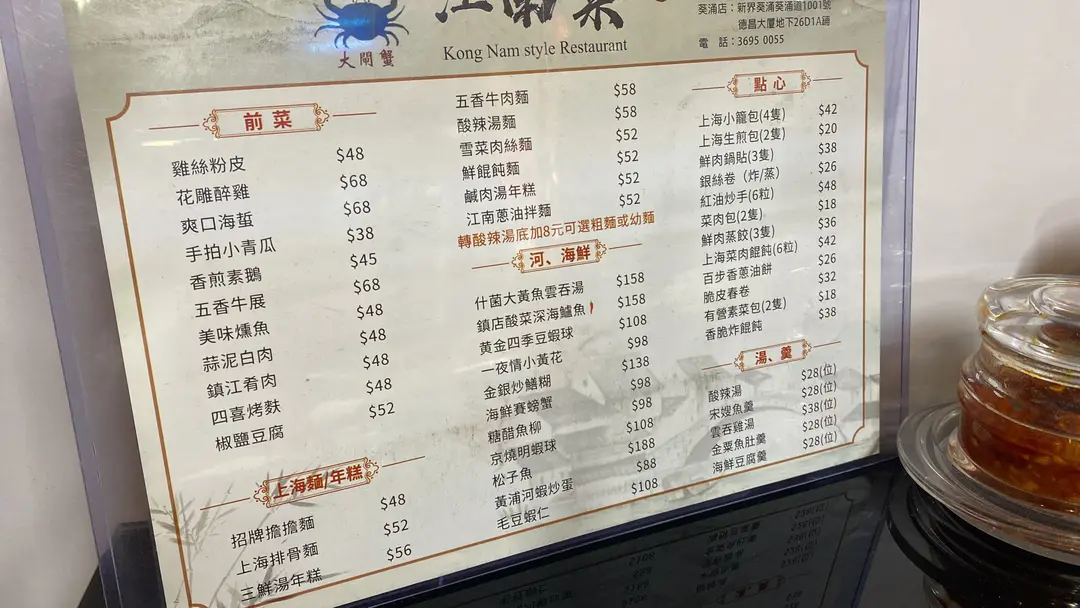 大閘蟹
江南菜
Kong Nam style Restaurant
葵涌店：新界葵涌葵涌道1001號
德昌大厦地下26D1A鋪
電 話：3695 0055
前菜
雞絲粉皮 $48
花雕醉雞 $68
爽口海蜇 $68
手拍小青瓜 $38
香煎素鵝 $45
五香牛展 $68
美味燻魚 $48
蒜泥白肉 $48
鎮江肴肉 $48
四喜烤麩 $48
椒鹽豆腐 $52
上海麵/年糕
招牌擔擔麵 $48
上海排骨麵 $52
三鮮湯年糕 $56
五香牛肉麵 $58
酸辣湯麵 $58
雪菜肉絲麵 $52
鮮餛飩麵 $52
鹹肉湯年糕 $52
江南蔥油拌麵 $52
轉酸辣湯底加8元可選粗麵或幼麵
河、海鮮
什菌大黃魚雲吞湯 $158
鎮店酸菜深海鱸魚 $158
黃金四季豆蝦球 $108
一夜情小黃花 $98
金銀炒鱔糊 $138
海鮮賽螃蟹 $98
糖醋魚柳 $98
京燒明蝦球 $108
松子魚 $188
黃浦河蝦炒蛋 $88
毛豆蝦仁 $108
點心
上海小籠包(4隻) $42
上海生煎包(2隻) $20
鮮肉鍋貼(3隻) $38
銀絲卷（炸/蒸） $26
紅油炒手(6粒) $48
菜肉包(2隻) $18
鮮肉蒸餃(3隻) $36
上海菜肉餛飩(6粒) $42
百步香蔥油餅 $26
脆皮春卷 $32
有營素菜包(2隻) $18
香脆炸餛飩 $38
湯、羹
酸辣湯 $28(位)
宋嫂魚羹 $28(位)
雲吞雞湯 $38(位)
金粟魚肚羹 $28(位)
海鮮豆腐羹 $28(位)